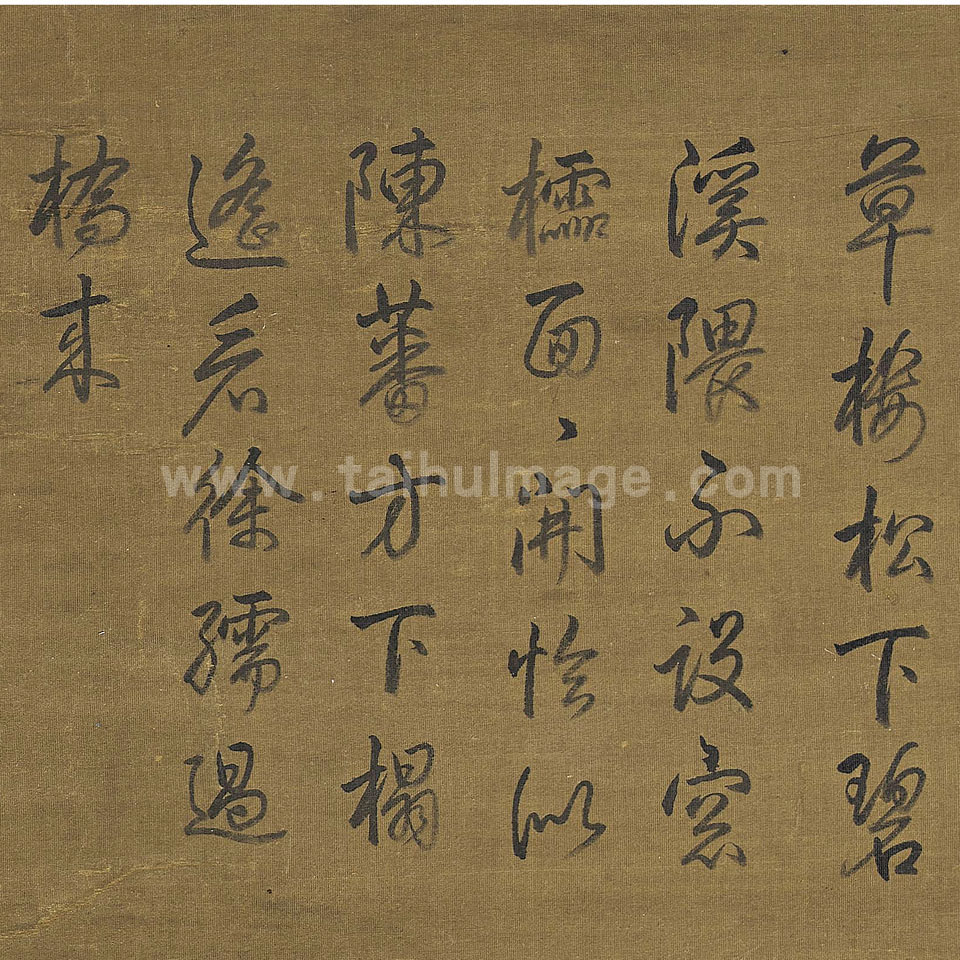 草樓松下碧
溪隈不設窓
櫺面〻開恰似
陳蕃方下榻
遙看徐孺過
橋來
www.taihuImage.com